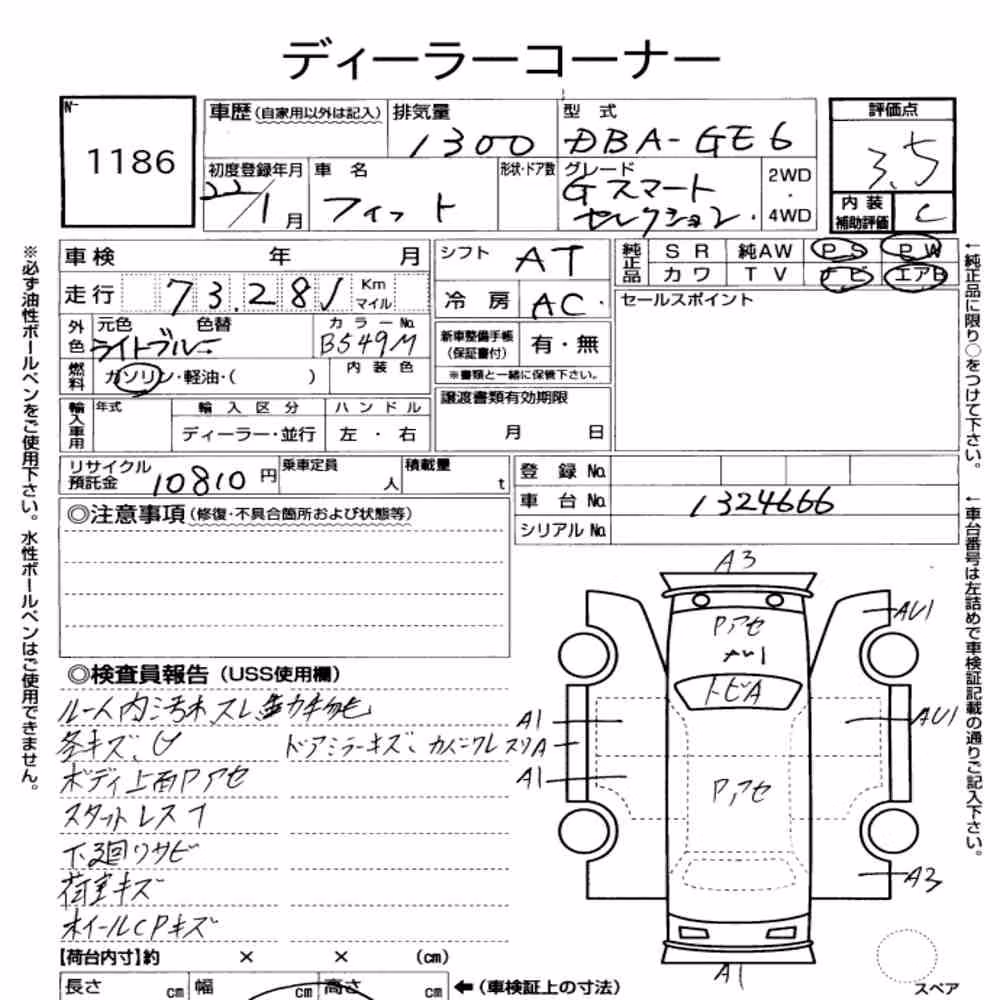 ディーラーコーナー
No.
1186
車歴 (自家用以外は記入)
排気量
1300
型式
DBA-GE6
評価点
3.5
初度登録年月
22/1月
車名
フィット
形状・ドア数
グレード
Gスマート
セレクション
2WD
・
4WD
内装
補助評価
C
車検 年 月
シフト
AT
純正品
SR 純AW PS PW
カワ TV ナビ エアB
走行 73.281 Km
マイル
冷房
AC
セールスポイント
外色
元色 色替
ライトブルー
カラーNo.
B549M
新車整備手帳
(保証書付)
有・無
燃料
ガソリン・軽油・( )
内装色
※書類と一緒に保管下さい。
輸入車用
年式
輸入区分
ハンドル
ディーラー・並行
左・右
譲渡書類有効期限
月 日
リサイクル
預託金
10810円
乗車定員
人
積載量
t
登録No.
車台No.
1324666
シリアルNo.
◎注意事項 (修復・不具合箇所および状態等)
◎検査員報告 (USS使用欄)
ルーム内
各キズ、U
ドアミラーキズ、カバーワレ スリA
ボディ上面Pアセ
下廻りサビ
荷室キズ
ホイールCPキズ
A3
Pアセ
AU1
トビA
AU1
A1
AU1
A1
Pアセ
A3
A1
スペア
【荷台内寸】約 × × (cm)
長さ cm 幅 cm 高さ cm
←(車検証上の寸法)
※必ず油性ボールペンをご使用下さい。水性ボールペンはご使用できません。
←純正品に限り○をつけて下さい。
←車台番号は左詰めで車検証記載の通りご記入下さい。